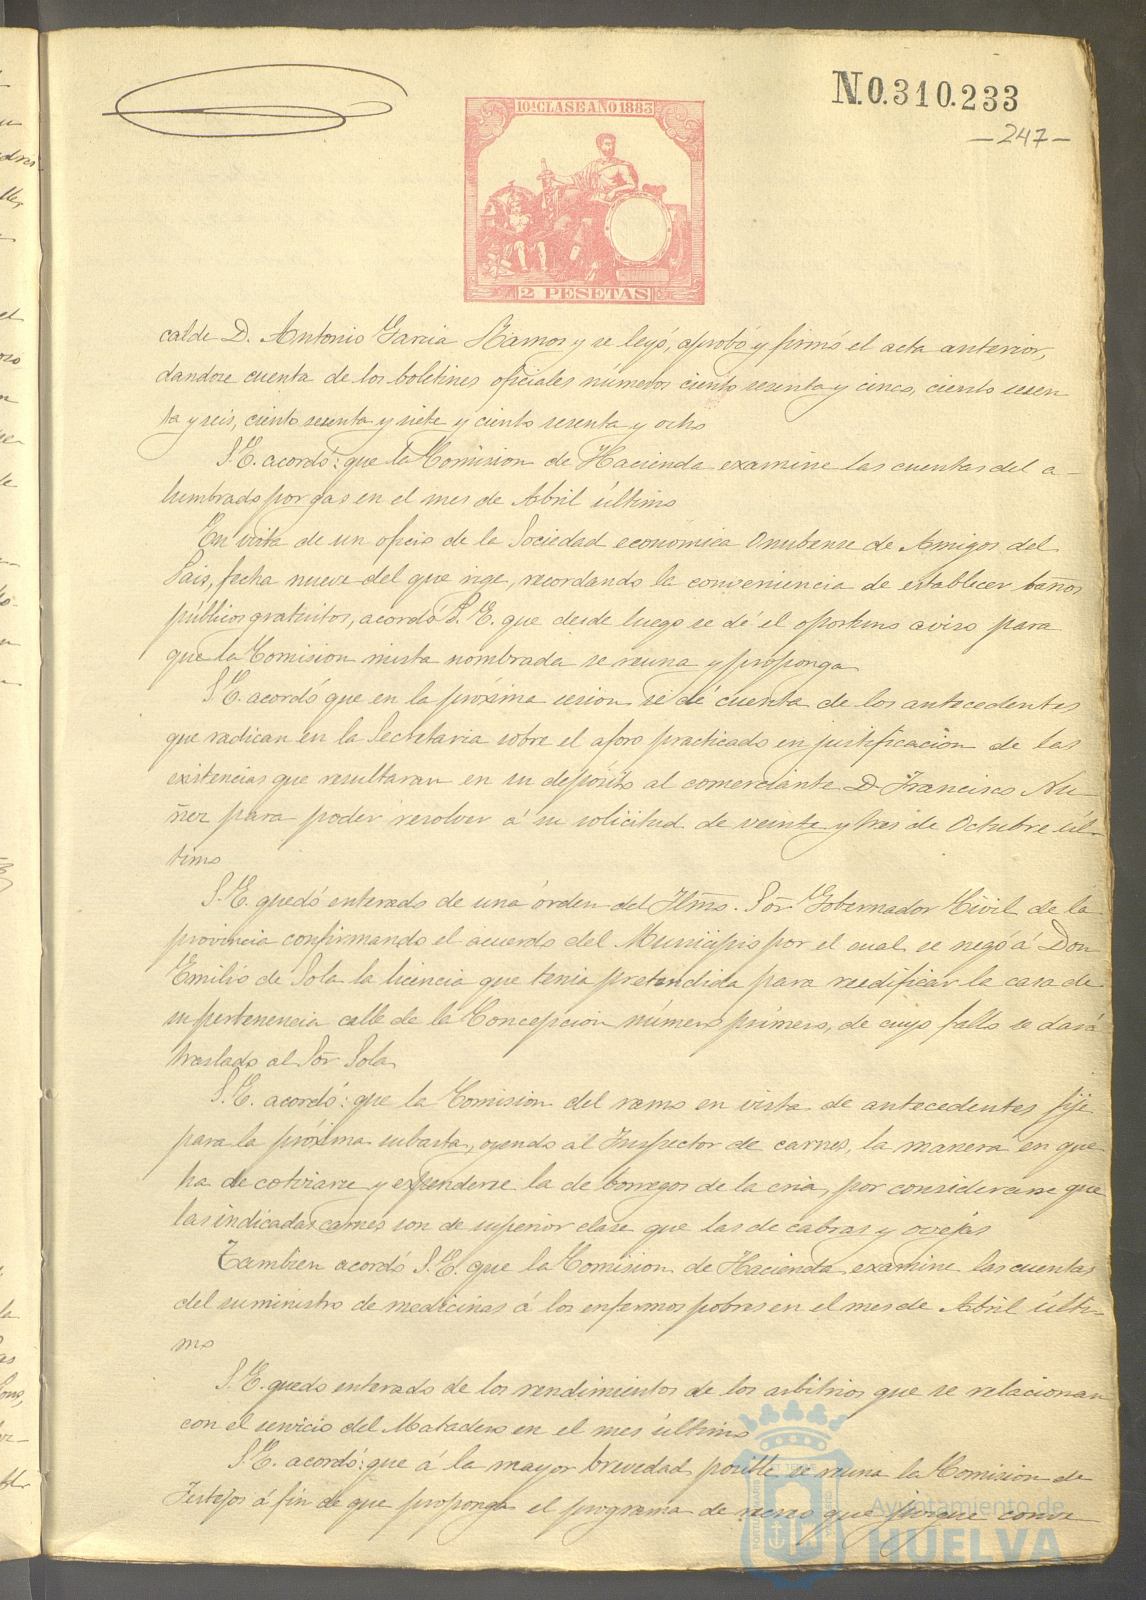 N.0.310.233
—247—
10ª CLASE AÑO 1883
2 PESETAS
calde D. Antonio Garcia Ramos y se leyó, aprobó y firmó el acta anterior,
dandose cuenta de los boletines oficiales números ciento sesenta y cinco, ciento sesen
ta y seis, ciento sesenta y siete y ciento sesenta y ocho
S.E. acordó: que la Comision de Hacienda examine las cuentas del a-
lumbrado por gas en el mes de Abril último
En vista de un oficio de la Sociedad económica Onubense de Amigos del
Pais, fecha nueve del que rige, recordando la conveniencia de establecer baños
públicos gratuitos, acordó S.E. que desde luego se dé el oportuno aviso para
que la Comision mista nombrada se reuna y proponga
S.E. acordó que en la próxima sesion se dé cuenta de los antecedentes
que radican en la Secretaria sobre el aforo practicado en justificacion de las
existencias que resultaran en su depósito al comerciante D. Francisco Nu-
ñez para poder resolver á su solicitud de veinte y tres de Octubre úl-
timo
S.E. quedó enterado de una órden del Iltmo. Sor. Gobernador Civil de la
provincia confirmando el acuerdo del Municipio por el cual se negó á Don
Emilio de Sola la licencia que tenia pretendida para reedificar la casa de
su pertenencia calle de la Concepcion número primero, de cuyo fallo se dará
traslado al Sor Sola
S.E. acordó: que la Comision del ramo en vista de antecedentes fije
para la próxima subasta, oyendo al Inspector de carnes, la manera en que
ha de cotizarse y expenderse la de borregos de la cria, por considerarse que
las indicadas carnes son de superior clase que las de cabras y ovejas
Tambien acordó S.E. que la Comision de Hacienda examine las cuentas
del suministro de medicinas á los enfermos pobres en el mes de Abril últi-
mo
S.E. quedó enterado de los rendimientos de los arbitrios que se relacionan
con el servicio del Matadero en el mes último
S.E. acordó: que á la mayor brevedad posible se reuna la Comision de
Festejos á fin de que proponga el programa de que juzgue conve
Ayuntamiento de
HUELVA